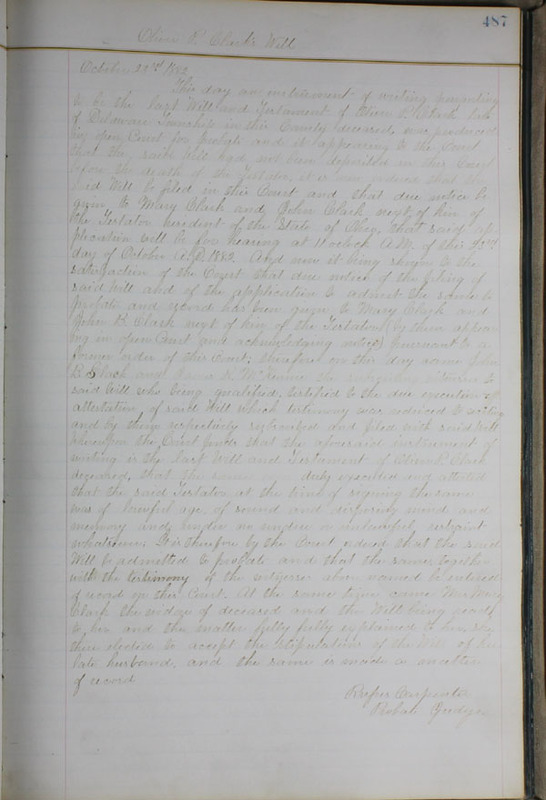 487
Oliver P. Clark's Will
October 23rd 1882
This day an instrument of writing purporting
to be the last Will and Testament of Oliver P. Clark late
of Delaware Township in this County deceased, was produced
in open Court for probate and it appearing to the Court
that the said Will had not been deposited in this Court
before the death of the Testator, it is now ordered that the
said Will be filed in this Court and that due notice be
given to Mary Clark and John Clark next of kin of
the Testator resident of the State of Ohio, that said ap-
plication will be for hearing at 11 o'clock A.M. of this 23rd
day of October A.D. 1882. And now it being shown to the
satisfaction of the Court that due notice of the filing of
said Will and of the application to admit the same to
probate and record has been given to Mary Clark and
John B. Clark next of kin of the Testator (by them appear-
ing in open Court and acknowledging notice) pursuant to a
former order of this Court; therefore on this day came John
B. Clark and R. McKinnis the subscribing witnesses to
said Will who being qualified, testified to the due execution &
attestation of said Will which testimony was reduced to writing
and by them respectively subscribed and filed with said Will
Whereupon the Court finds that the aforesaid instrument of
writing is the last Will and Testament of Oliver P. Clark
deceased, that the same was duly executed and attested
that the said Testator at the time of signing the same
was of lawful age, of sound and disposing mind and
memory and under no undue or unlawful restraint
whatsoever; It is therefore by the Court ordered that the said
Will be admitted to probate and that the same, together
with the testimony of the witnesses above named be entered
of record in this Court. At the same time came Mrs. Mary
Clark the widow of deceased and the Will being read
to her and the matter fully explained to her, she
then elected to accept the stipulation of the Will of her
late husband, and the same is made a matter
of record
Rufus Carpenter
Probate Judge